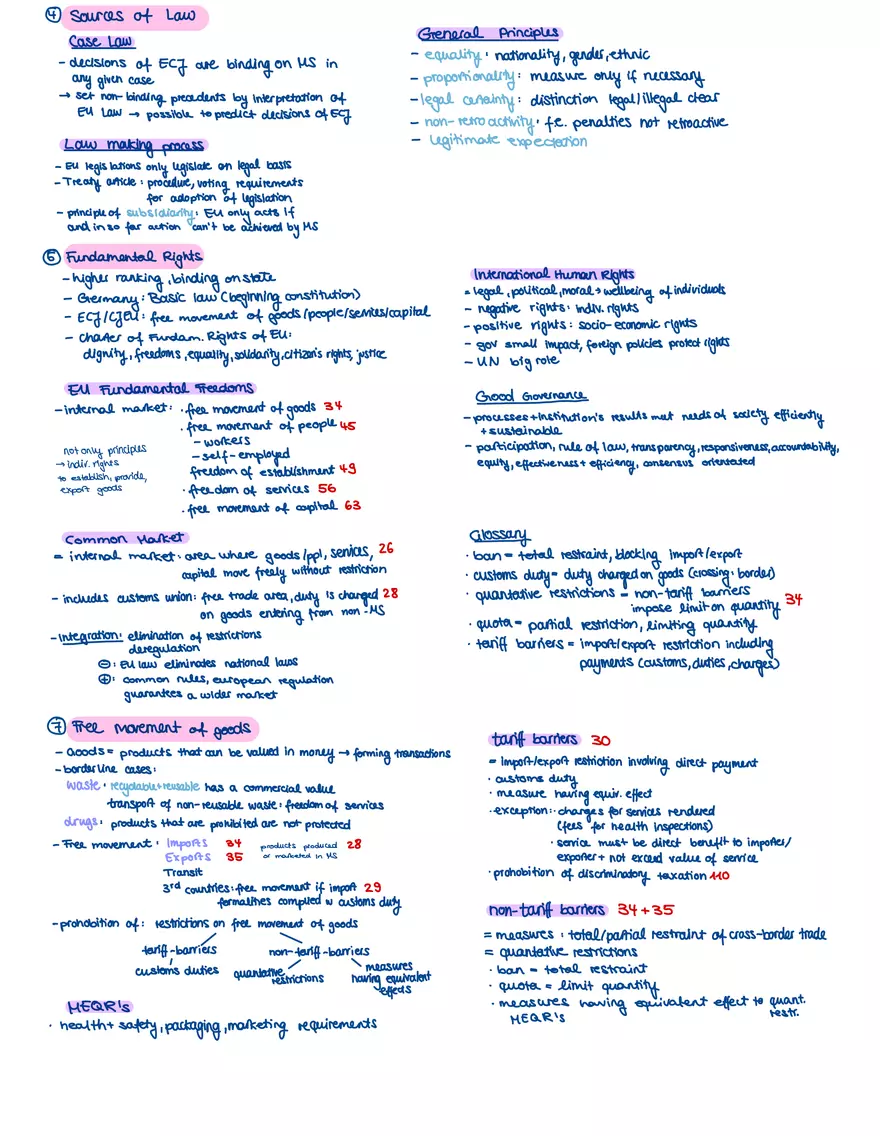 ④ Sources of Law
Case Law
- decisions of ECJ are binding on MS in
any given case
→ set non-binding precedents by interpretation of
EU Law → possible to predict decisions of ECJ
Law making process
- EU legislations only legislate on legal basis
- Treaty article: procedure, voting requirements
for adoption of legislation
- principle of subsidiarity: EU only acts if
and in so far action can't be achieved by MS
General Principles
- equality: nationality, gender, ethnic
- proportionality: measure only if necessary
- legal certainty: distinction legal/illegal clear
- non-retroactivity: f.e. penalties not retroactive
- legitimate expectation
⑤ Fundamental Rights
- higher ranking, binding on state
- Germany: Basic law (beginning constitution)
- ECJ/CJEU: free movement of goods/people/services/capital
- Charter of Fundam. Rights of EU:
dignity, freedoms, equality, solidarity, citizen's rights, justice
International Human Rights
= legal, political, moral → wellbeing of individuals
- negative rights: indiv. rights
- positive rights: socio-economic rights
- gov small impact, foreign policies protect rights
- UN big role
EU Fundamental Freedoms
- internal market: · free movement of goods 34
· free movement of people 45
- workers
- self-employed
freedom of establishment 49
· freedom of services 56
· free movement of capital 63
not only principles
→ indiv. rights
to establish, provide,
export goods
Good Governance
- processes + institution's results meet needs of society efficiently
+ sustainable
- participation, rule of law, transparency, responsiveness, accountability,
equity, effectiveness + efficiency, consensus orientated
Common Market
= internal market: area where goods/ppl, services, 26
capital move freely without restriction
- includes customs union: free trade area, duty is charged 28
on goods entering from non-MS
- Integration: elimination of restrictions
deregulation
⊖: EU law eliminates national laws
⊕: common rules, european regulation
guarantees a wider market
Glossary
· ban = total restraint, blocking import/export
· customs duty = duty charged on goods (crossing border)
· quantative restrictions = non-tariff barriers
impose limit on quantity 34
· quota = partial restriction, limiting quantity
· tariff barriers = import/export restriction including
payments (customs, duties, charges)
⑦ Free movement of goods
- Goods = products that can be valued in money → forming transactions
- borderline cases:
waste: recyclable + reusable has a commercial value
transport of non-reusable waste: freedom of services
drugs: products that are prohibited are not protected
- Free movement: Imports 34 products produced 28
Exports 35 or marketed in MS
Transit
3rd countries: free movement if import 29
formalities complied w customs duty
- prohibition of: restrictions on free movement of goods
tariff-barriers non-tariff-barriers
customs duties quantative restrictions measures having equivalent effects
MEQR's
· health + safety, packaging, marketing requirements
tariff barriers 30
= import/export restriction involving direct payment
· customs duty
· measure having equiv. effect
· exception: · charges for services rendered
(fees for health inspections)
· service must be direct benefit to importer/
exporter + not exceed value of service
· prohobition of discriminatory taxation 110
non-tariff barriers 34 + 35
= measures: total/partial restraint of cross-border trade
= quantative restrictions
· ban = total restraint
· quota = limit quantity
· measures having equivalent effect to quant. restr.
MEQR's